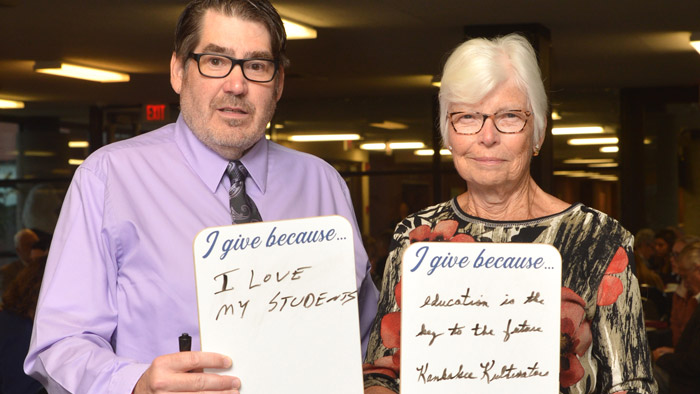 EXIT
I give because...
I LOVE
MY STUDENTS
I give because...
education is the
key to the future
Kankakee Kultivators